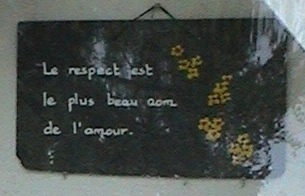 Le respect est
le plus beau nom
de l'amour.